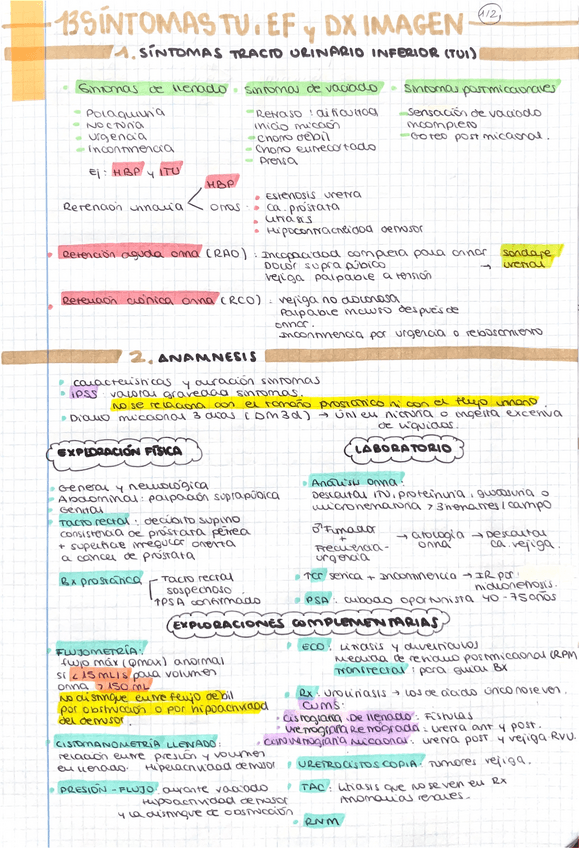 13 SÍNTOMAS TUI, EF y DX IMAGEN
1/2
1. SÍNTOMAS TRACTO URINARIO INFERIOR (TUI)
Síntomas de llenado
- Polaquiuria
- Nocturia
- Urgencia
- Incontinencia
Ej: HBP y ITU
Síntomas de vaciado
- Retraso / dificultad
inicio micción
- Chorro débil
- Chorro entrecortado
- Prensa
Síntomas postmiccionales
- Sensación de vaciado
incompleto
- Goteo post miccional.
Retención urinaria
HBP
Otros:
Estenosis uretra
Ca. próstata
Litiasis
Hipocontractilidad detrusor
Retención aguda orina (RAO): Incapacidad completa para orinar
Dolor suprapúbico
Vejiga palpable a tensión
→ sondaje
uretral
Retención crónica orina (RCO): vejiga no dolorosa
Palpable incluso después de
orinar.
Incontinencia por urgencia o rebosamiento
2. ANAMNESIS
características y duración síntomas
IPSS: valorar gravedad síntomas.
No se relaciona con el tamaño prostático ni con el flujo urinario.
Diario miccional 3 días (DM3d) → útil en nicturia o ingesta excesiva
de líquidos.
EXPLORACIÓN FÍSICA
General y neurológica
Abdominal: palpación suprapúbica
Genital
Tacto rectal: decúbito supino
consistencia de próstata pétrea
+ superficie irregular orienta
a cáncer de próstata
Bx prostática
Tacto rectal
sospechoso
↑PSA confirmado
LABORATORIO
Análisis orina:
Descartar ITU, proteinuria, glucosuria o
microhematuria >3 hematíes/campo
♂ Fumador
+
Frecuencia-
urgencia
→ citología
orina
→ Descartar
ca. vejiga.
Tcr sérica + Incontinencia → IR por
hidronefrosis.
PSA: cribado oportunista 40-75 años
EXPLORACIONES COMPLEMENTARIAS
FLUJOMETRÍA:
flujo máx (Qmax) anormal
si <15 ml/s para volumen
orina >150 ml
No distingue entre flujo débil
por obstrucción o por hipoactividad
del detrusor.
CISTOMANOMETRÍA LLENADO:
relación entre presión y volumen
en llenado. Hiperactividad detrusor
PRESIÓN-FLUJO: durante vaciado
Hipoactividad detrusor
y la distingue de obstrucción
ECO: Litiasis y divertículos
Medida de residuo postmiccional (RPM)
Transrectal: para guiar Bx
Rx: Urolitiasis → los de ácido úrico no se ven.
CUMS:
- Cistograma de llenado: Fístulas
- Uretrograma retrógrada: uretra ant y post.
- Cistouretrograma miccional: uretra post y vejiga RVU.
URETROCISTOSCOPIA: tumores vejiga.
TAC: litiasis que no se ven en Rx
Anomalías renales.
RNM